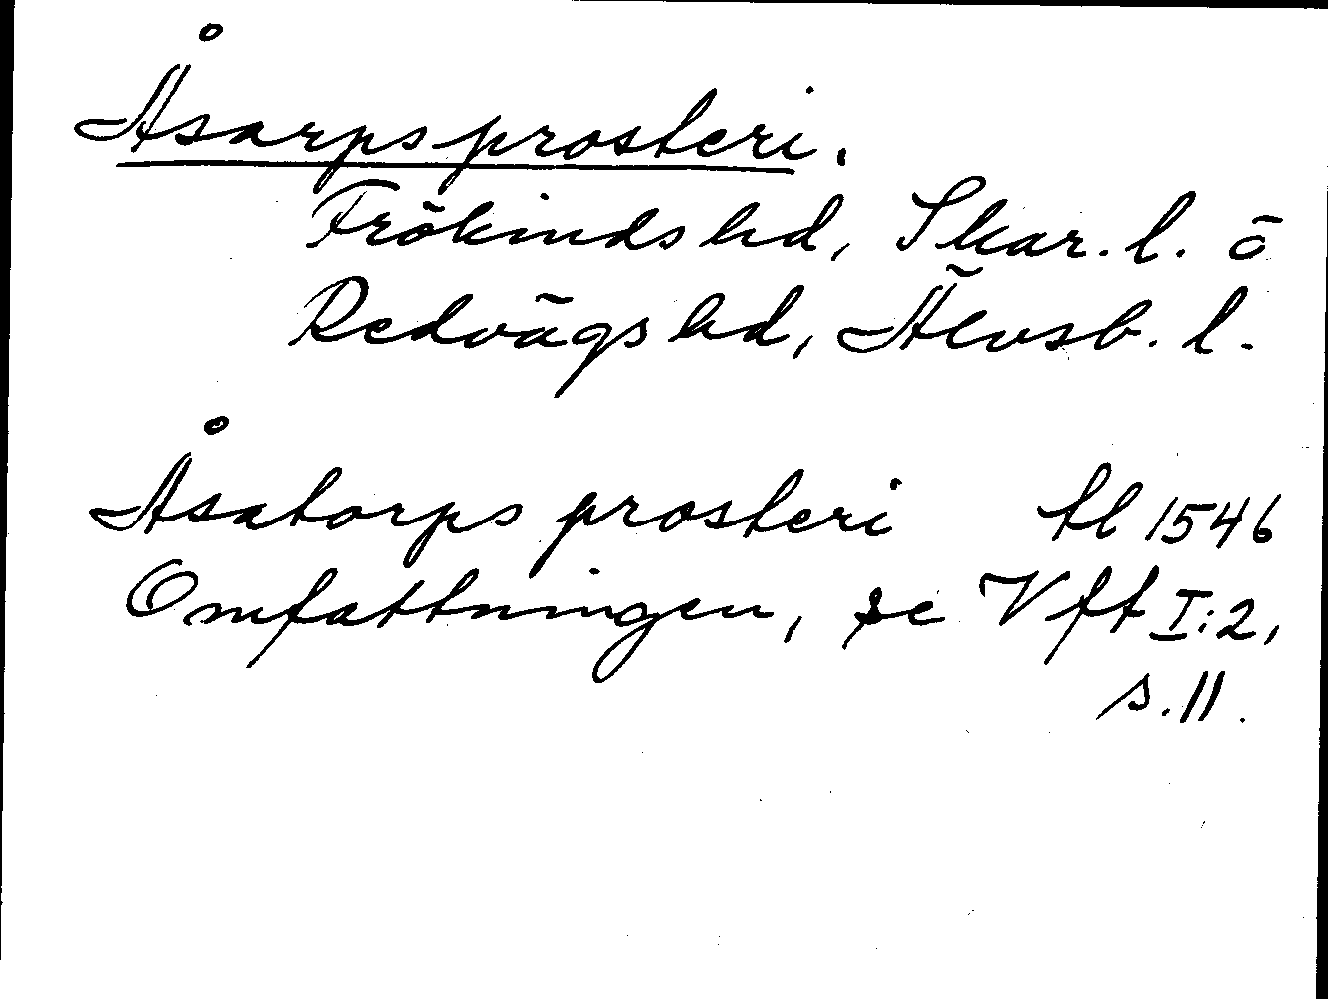 Åsarpsprosteri.
Frökinds hd, Skar. l. o
Redvägs hd, Älvsb. l.
Åsatorps prosteri tl 1546
Omfattningen, se Vft I:2,
s. 11.